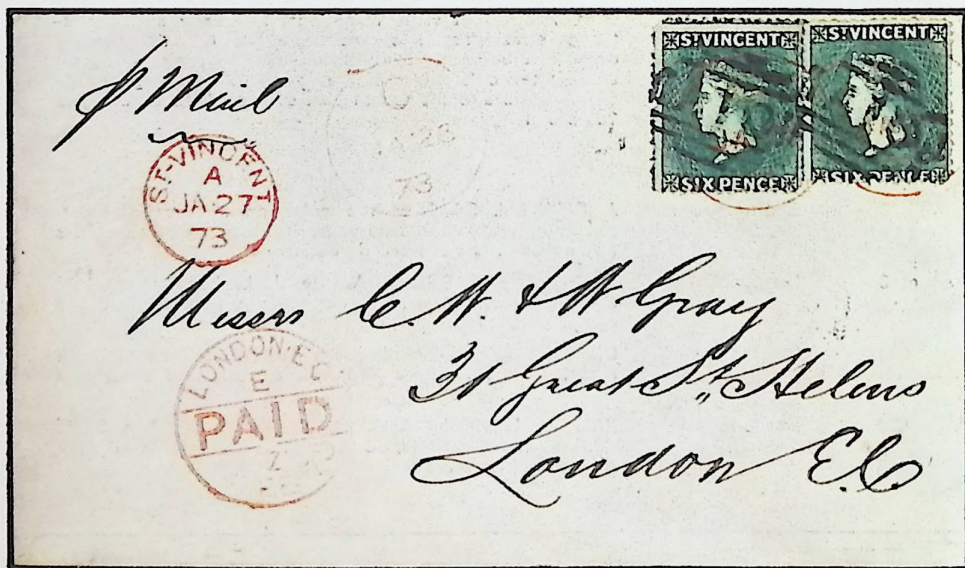 p Mail
ST VINCENT
SIX PENCE
ST VINCENT
SIX PENCE
ST-VINCENT
A
JA-27
73
73
Messrs C. W. & W Gray
31 Great St. Helens
London E.C.
LONDON·E.C
E
PAID